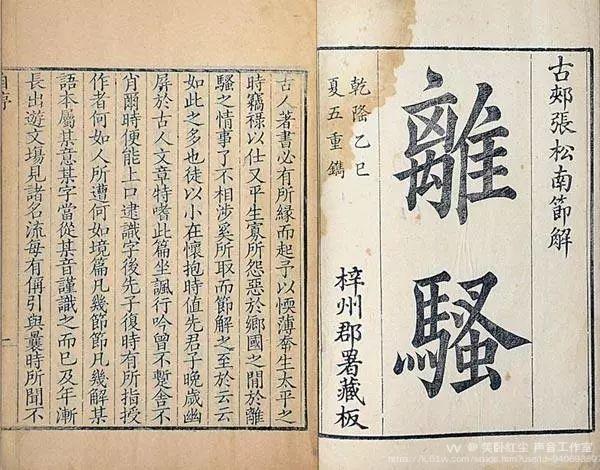 古郟張松南節解
離騷
乾隆乙巳
夏五重鐫
梓州郡署藏板
古人著書必有所緣而起予以愞薄幸生太平之
時竊祿以仕又平生寡所怨惡於鄉國之間於離
騷之情事了不相涉奚所取而節解之至於云云
如此之多也徒以小在懷抱時值先君子晚歲幽
屏於古人文章特嗜此篇坐諷行吟曾不蹔舍不
肖爾時便能上口逮識字後先子復時有所指授
作者何如人所遭何如境篇凡幾節節凡幾解某
語本屬某意某字當從某音謹識之而已及年漸
長出遊文場見諸名流每有偁引與曩時所聞不
一
笑卧红尘 声音工作室